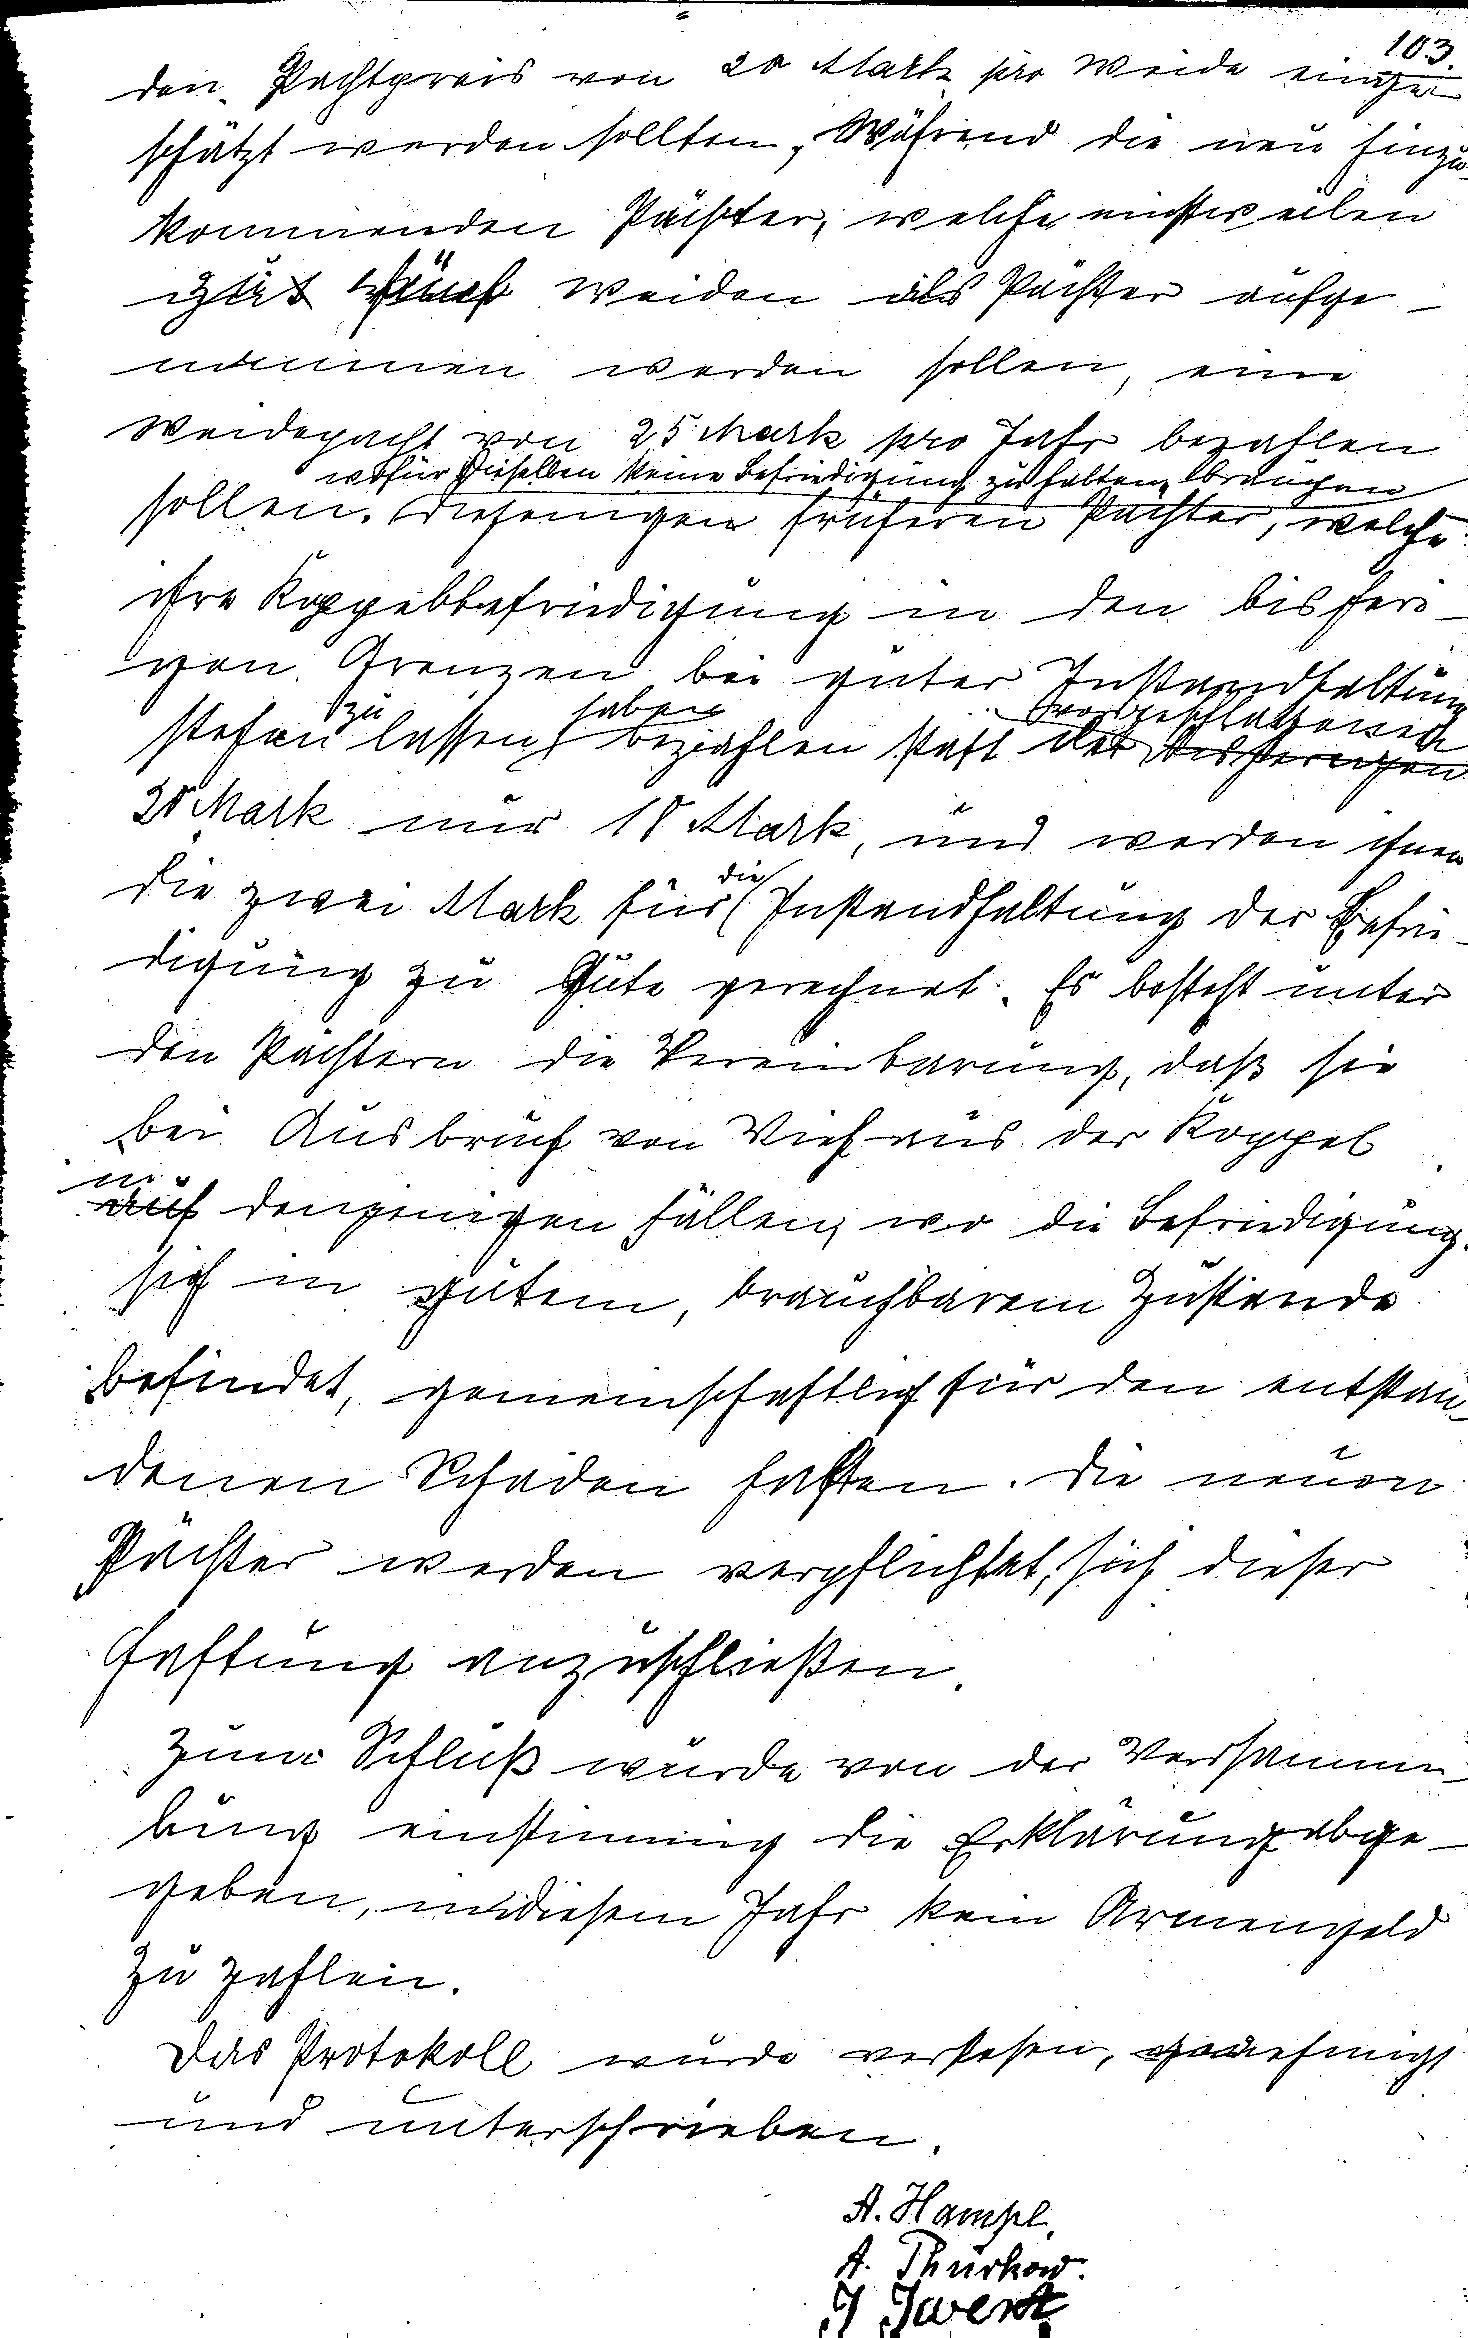 103.
den Pachtpreis von 20 Mark pro Weide einge-
schätzt werden sollten. Während die neu hinzu-
kommenden Pächter, welche einstweilen
Weiden als Pächter aufge-
nommen werden sollen, eine
Weidepacht von 25 Mark pro Jahr bezahlen
wofür dieselben keine Befriedigung zu halten brauchen
sollen. Diejenigen früheren Pächter, welche
ihre Koppelbefriedigung in den bisheri-
gen Grenzen bei guter Instandhaltung
zu haben vorgeschlagenen
stehen lassen bezahlen statt der bisherigen
20 Mark nur 18 Mark, und werden ihnen
die
die zwei Mark für Instandhaltung der Befrie-
digung zu Gute gerechnet. Es besteht unter
den Pächtern die Vereinbarung, daß sie
bei Ausbruch von Vieh aus der Koppel
in
auf denjenigen Fällen, wo die Befriedigung
sich in gutem, brauchbarem Zustande
befindet, gemeinschaftlich für den entstan-
denen Schaden haften. Die neuen
Pächter werden verpflichtet, sich dieser
Haftung anzuschließen.
Zum Schluß wurde von der Versamm-
lung einstimmig die Erklärung abge-
geben, in diesem Jahr kein Armengeld
zu zahlen.
Das Protokoll wurde verlesen, genehmigt
und unterschrieben.
A. Hampl.
A. Thurkow.
J. Iwert